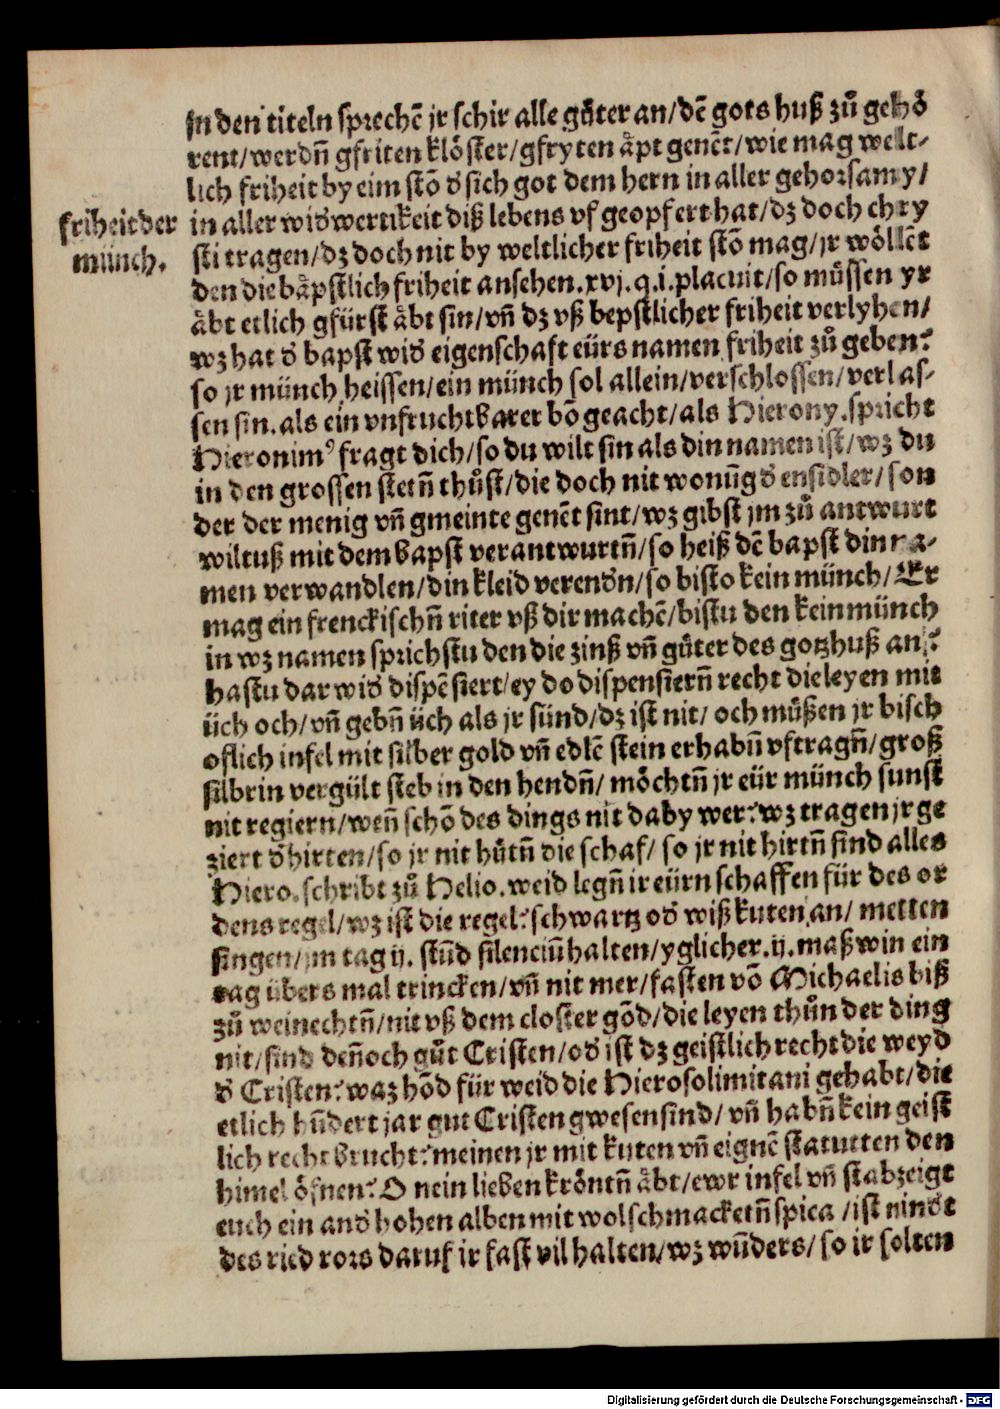 in den titeln sprechē jr schir alle gůter an/dē gots huß zů gehö
rent/werdn̄ gfriten klöster/gfryten åpt genēt/wie mag welt-
lich friheit by eim stō d̕ sich got dem hern in aller gehorsamy/
friheit der
münch.
in aller wid̕wertikeit diß lebens vf geopfert hat/dz doch chry
sti tragen/dz doch nit by weltlicher friheit stō mag/jr wöllēt
den die båpstlich friheit ansehen.xvj.q.i.placuit/so müssen yr
åbt etlich gfürst åbt sin/vn̄ dz vß bepstlicher friheit verlyhen/
wz hat d̕ bapst wid̕ eigenschaft eürs namen friheit zů geben?
so jr münch heissen/ein münch sol allein/verschlossen/verlas-
sen sin.als ein vnfruchtbarer bō geacht/als Hierony.spricht
Hieronim⁹ fragt dich/so du wilt sin als din namen ist/wz du
in den grossen stetn̄ thůst/die doch nit wonūg d̕ ensidler/son
der der menig vn̄ gmeinte genēt sint/wz gibst jm zů antwurt
wiltuß mit dem bapst verantwurtn̄/so heiß dē bapst din na-
men verwandlen/din kleid verend̕n/so bisto kein münch/Er
mag ein frenckischn̄ riter vß dir machē/bistu den kein münch
in wz namen sprichstu den die zinß vn̄ gůter des gotzhuß an?
hastu dar wid̕ dispēsiert/ey do dispensiern̄ recht die leyen mit
üch och/vn̄ gebn̄ üch als jr sünd/dz ist nit/och můßen jr bisch
oflich infel mit silber gold vn̄ edlē stein erhabn̄ vftragn̄/groß
silbrin vergült steb in den hendn̄/möchtn̄ jr eür münch sunst
nit regiern/wen̄ schō des dings nit daby wer?wz tragen jr ge
ziert d̕ hirten/so jr nit hůtn̄ die schaf/so jr nit hirtn̄ sind alles
Hiero.schribt zů Helio.weid legn̄ ir eürn schaffen für des or
dens regel/wz ist die regel?schwartz od̕ wiß kuten an/metten
singen/jm tag ij.stūd silenciū halten/yglicher.ij.maß win ein
tag übers mal trincken/vn̄ nit mer/fasten vō Michaelis biß
zů weinechtn̄/nit vß dem closter gōd/die leyen thůn der ding
nit/sind den̄och gůt Cristen/od̕ ist dz geistlich recht die weyd
d̕ Cristen?waz hōd für weid die Hierosolimitani gehabt/die
etlich hūdert jar gut Cristen gwesen sind/vn̄ habn̄ kein geist
lich recht brucht?meinen jr mit kuten vn̄ eignē statutten den
himel öfnen?O nein lieben kröntn̄ åbt/ewr infel vn̄ stab zeigt
euch ein and̕ hohen alben mit wolschmacketn̄ spica/ist nindt
des ried rors daruf ir fast vil halten/wz wūders/so ir solten
Digitalisierung gefördert durch die Deutsche Forschungsgemeinschaft - DFG